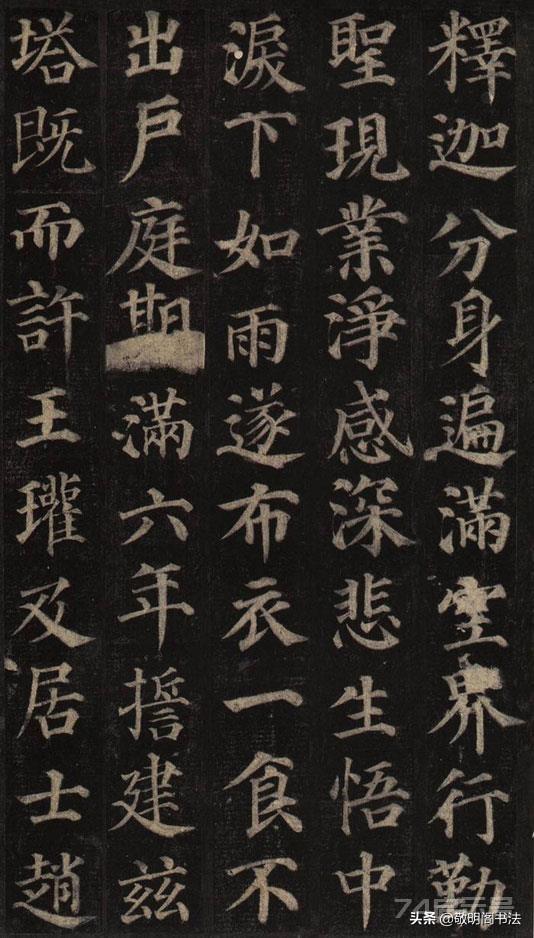 釋迦分身遍滿空界行勤
聖現業淨感深悲生悟中
淚下如雨遂布衣一食不
出戶庭期滿六年誓建茲
塔既而許王瓘及居士趙
头条 @敬明阁书法